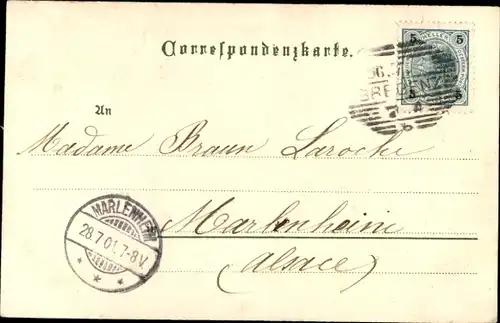 Correspondenzkarte.
5 HELLER 5
5 5
BREGENZ
An
Madame Braun Laroche
Marlenheim
(Alsace)
MARLENHEIM
28.7.01.7-8V.